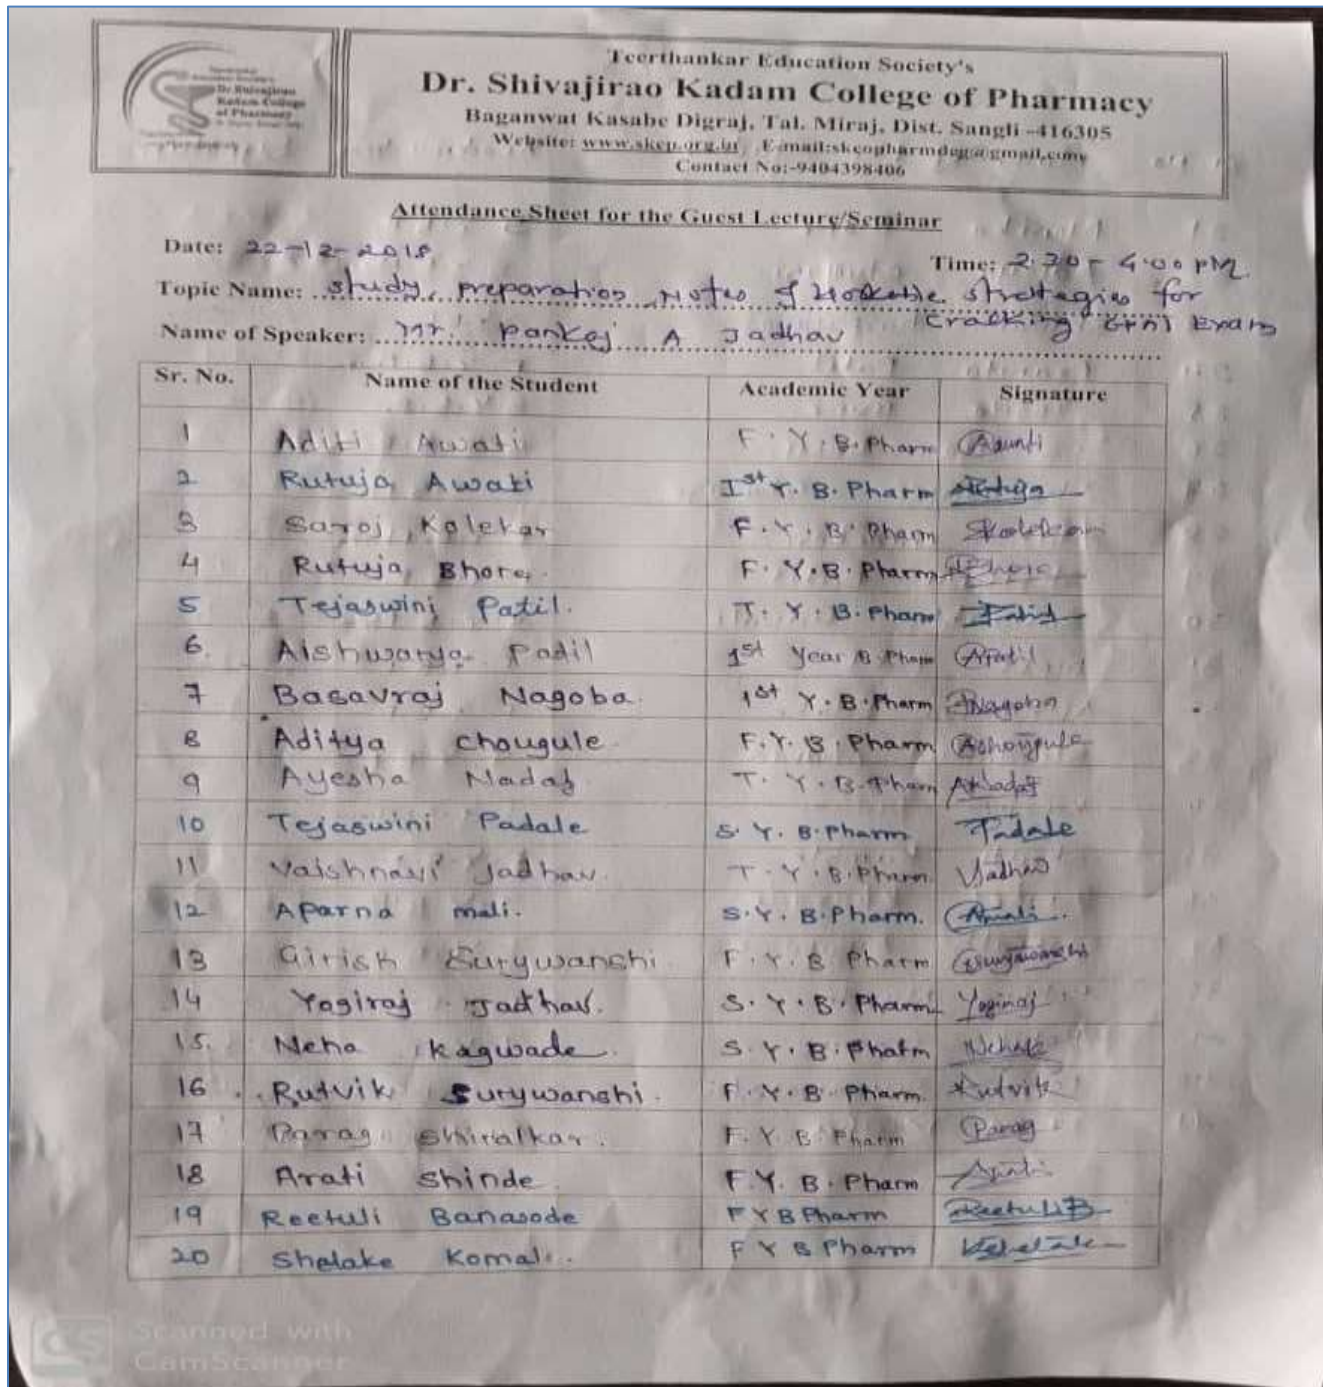 Dr. Shivajirao
Kadam College
of Pharmacy
Teerthankar Education Society's
Dr. Shivajirao Kadam College of Pharmacy
Baganwat Kasabe Digraj, Tal. Miraj, Dist. Sangli -416305
Website: www.skcp.org.in, E-mail:skcopharmdeg@gmail.com
Contact No:-9404398406
Attendance Sheet for the Guest Lecture/Seminar
Date: 22-12-2018
Time: 2.30 - 4.00 PM.
Topic Name: study, preparation Notes & strategies for
Cracking Exam
Name of Speaker: Mr. Pankaj A Jadhav
Sr. No. Name of the Student Academic Year Signature
1 Aditi Awati F.Y.B.Pharm Aawati
2 Rutuja Awati 1st Y. B. Pharm Rutuja
3 Saroj Kolekar F.Y.B. Pharm Skolekar
4 Rutuja Bhore F.Y.B.Pharm RBhore
5 Tejaswini Patil. T.Y.B.Pharm Patil
6. Aishwarya Patil 1st Year B Pharm APatil
7 Basavraj Nagoba. 1st Y.B.Pharm BNagoba
8 Aditya chougule F.Y.B.Pharm Achougule
9 Ayesha Nadaf T.Y.B.Pharm ANadaf
10 Tejaswini Padale S.Y.B.Pharm Padale
11 Vaishnavi Jadhav. T.Y.B.Pharm. VJadhav
12 Aparna mali. S.Y.B.Pharm. Amali.
13 Girish Surywanshi F.Y.B Pharm Gsuryawanshi
14 Yogiraj Jadhav. S.Y.B.Pharm Yogiraj
15. Neha Kagwade. S.Y.B.Pharm NehaK
16 Rutvik Surywanshi. F.Y.B.Pharm. Rutvik
17 Parag Shiralkar. F.Y.B.Pharm Parag
18 Arati Shinde F.Y.B.Pharm Arati
19 Reetuli Banasode F Y B Pharm ReetuliB
20 Shelake Komal. F Y B Pharm
CS Scanned with
CamScanner